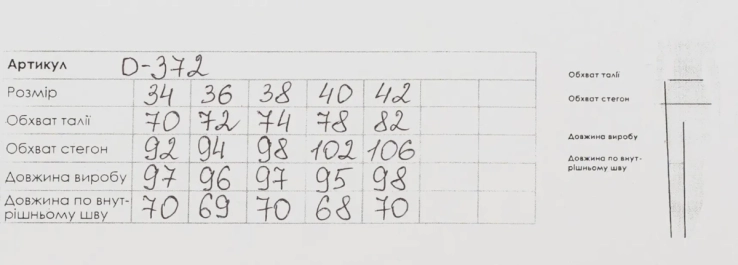 Артикул D-372
Розмір 34 36 38 40 42
Обхват талії 70 72 74 78 82
Обхват стегон 92 94 98 102 106
Довжина виробу 97 96 97 95 98
Довжина по внут-
рішньому шву 70 69 70 68 70
Обхват талії
Обхват стегон
Довжина виробу
Довжина по внут-
рішньому шву